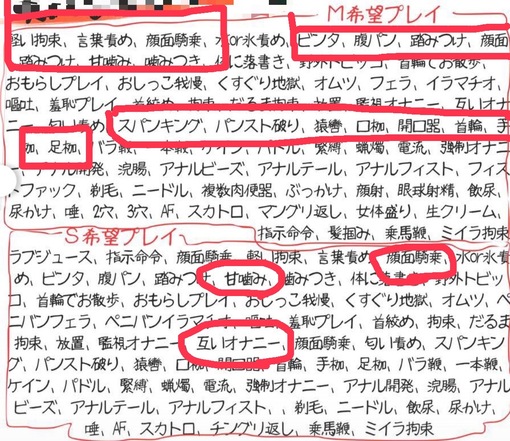 M希望プレイ
軽い拘束、言葉責め、顔面騎乗、水or氷責め、ビンタ、腹パン、踏みつけ、顔面
踏みつけ、甘噛み、噛みつき、体に落書き、野外トビッコ、首輪でお散歩、
おもらしプレイ、おしっこ我慢、くすぐり地獄、オムツ、フェラ、イラマチオ、
嘔吐、羞恥プレイ、首絞め、拘束、だるま拘束、放置、監視オナニー、互いオナ
ニー、匂い責め、スパンキング、パンスト破り、猿轡、口枷、開口器、首輪、手
枷、足枷、バラ鞭、一本鞭、ケイン、パドル、緊縛、蝋燭、電流、強制オナニー
、アナル開発、浣腸、アナルビーズ、アナルテール、アナルフィスト、フィス
トファック、剃毛、ニードル、複数肉便器、ぶっかけ、顔射、眼球射精、飲尿、
尿かけ、唾、2穴、3穴、AF、スカトロ、マングリ返し、女体盛り、生クリーム、
指示命令、髪掴み、乗馬鞭、ミイラ拘束
S希望プレイ
ラブジュース、指示命令、顔面騎乗、軽い拘束、言葉責め、顔面騎乗、水or氷責
め、ビンタ、腹パン、踏みつけ、甘噛み、噛みつき、体に落書き、野外トビッ
コ、首輪でお散歩、おもらしプレイ、おしっこ我慢、くすぐり地獄、オムツ、ペ
ニバンフェラ、ペニバンイラマチオ、嘔吐、羞恥プレイ、首絞め、拘束、だるま
拘束、放置、監視オナニー、互いオナニー、顔面騎乗、匂い責め、スパンキン
グ、パンスト破り、猿轡、口枷、開口器、首輪、手枷、足枷、バラ鞭、一本鞭、
ケイン、パドル、緊縛、蝋燭、電流、強制オナニー、アナル開発、浣腸、アナル
ビーズ、アナルテール、アナルフィスト、、剃毛、ニードル、飲尿、尿かけ、
唾、AF、スカトロ、チングリ返し、乗馬鞭、ミイラ拘束